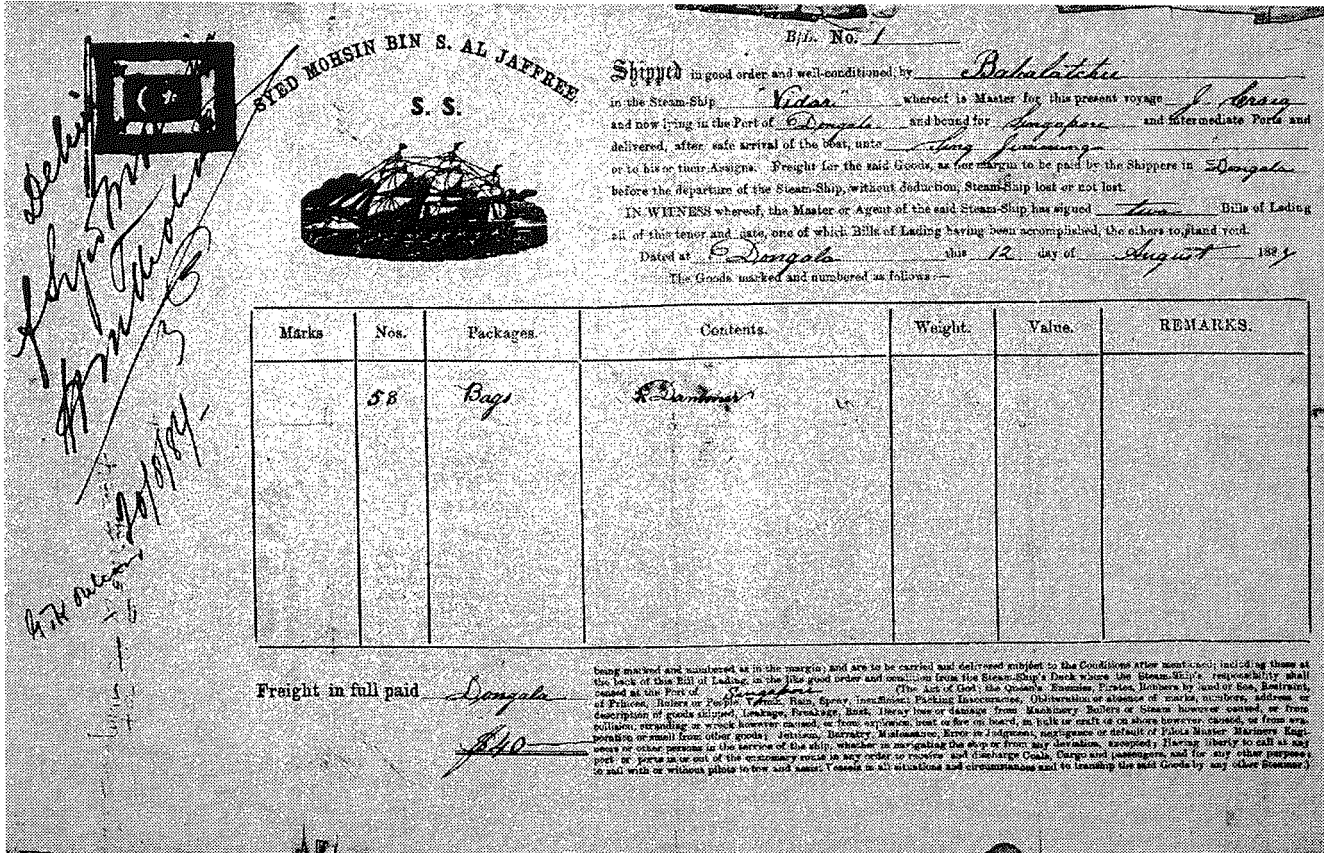 B/L. No. 1
SYED MOHSIN BIN S. AL JAFFREE
S. S.
Shipped in good order and well-conditioned, by Babalatchie
in the Steam-Ship "Vidar" whereof is Master for this present voyage J. Craig
and now lying in the Port of Dongala and bound for Singapore and intermediate Ports and
delivered, after safe arrival of the boat, unto
or to his or their Assigns. Freight for the said Goods, as per margin to be paid by the Shippers in Dongala
before the departure of the Steam-Ship, without deduction, Steam-Ship lost or not lost.
IN WITNESS whereof, the Master or Agent of the said Steam-Ship has signed two Bills of Lading
all of this tenor and date, one of which Bills of Lading having been accomplished, the others to stand void.
Dated at Dongala this 12 day of August 1884
The Goods marked and numbered as follows:—
Marks Nos. Packages. Contents. Weight. Value. REMARKS.
58 Bags Dammar
20/8/84
being marked and numbered as in the margin; and are to be carried and delivered subject to the Conditions after mentioned; including those at
the back of this Bill of Lading, in the like good order and condition from the Steam-Ship's Deck where the Steam-Ship's responsibility shall
ceased at the Port of Singapore (The Act of God; the Queen's Enemies, Pirates, Robbers by Land or Sea, Restraint
of Princes, Rulers or People, Vermin, Rain, Spray, Insufficient Packing Inaccuracies, Obliteration or absence of marks, numbers, address or
description of goods shipped, Leakage, Breakage, Rust, Decay loss or damage from Machinery Boilers or Steam however caused, or from
collision, stranding or wreck however caused, or from explosion, heat or fire on board, in bulk or craft or on shore however caused, or from
or smell from other goods; Jettison, Barratry, Misfeasance, Error in Judgment, negligence or default of Pilots Master Mariners
or other persons in the service of the ship, whether in navigating the ship or from any deviation, excepted; Having liberty to call at any
port or ports in or out of the customary route in any order to receive and discharge Coals, Cargo and passengers, and for any other purpose
to sail with or without pilots to tow and assist Vessels in all situations and circumstances and to tranship the said Goods by any other Steamer.)
Freight in full paid Dongala
$40